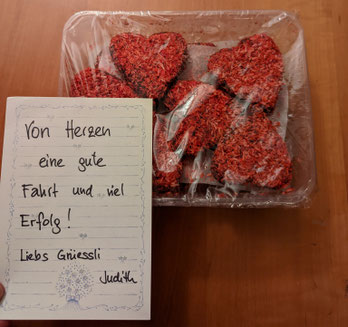 Von Herzen
eine gute
Fahrt und viel
Erfolg!
Liebs Grüessli
Judith